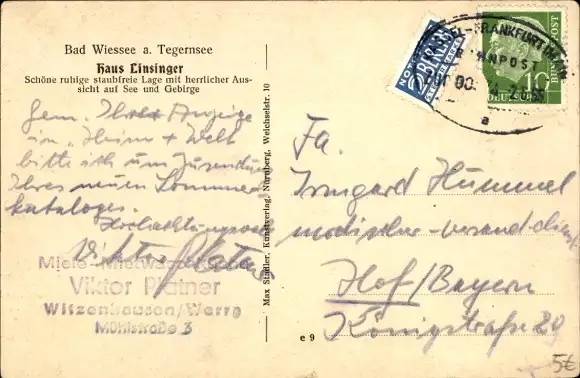 Bad Wiessee a. Tegernsee
Haus Linsinger
Schöne ruhige staubfreie Lage mit herrlicher Aus-
sicht auf See und Gebirge
Gem. Ihrer Anzeige
in „Heim + Welt
bitte ich um Zusendung
Ihres neuen Sommer
kataloges.
Hochachtungsvoll
Viktor Platner
Viktor Platner
Witzenhausen/Werra
Mühlstraße 3
Max Stadler, Kunstverlag, Nürnberg, Weichselstr. 10
e 9
NOTOPFER
2 BERLIN
STEUERMARKE
KASSEL-FRANKFURT (MAIN)
BAHNPOST
a
10
DEUTSCHE BUNDESPOST
Fa.
Irmgard Hummel
modischer-Versanddienst
Hof/Bayern
Königstraße 29
5€